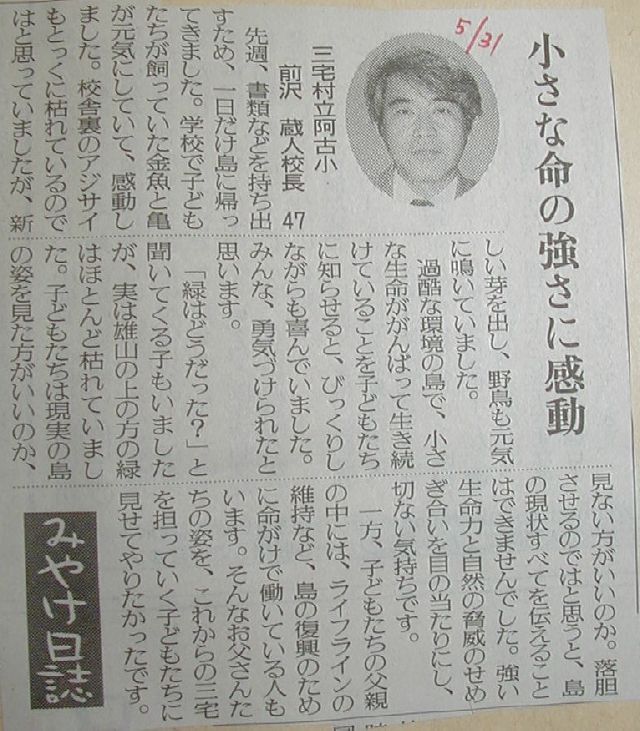 5/31
小さな命の強さに感動
三宅村立阿古小
前沢　蔵人校長　47
先週、書類などを持ち出
すため、一日だけ島に帰っ
てきました。学校で子ども
たちが飼っていた金魚と亀
が元気にしていて、感動し
ました。校舎裏のアジサイ
もとっくに枯れているので
はと思っていましたが、新
しい芽を出し、野鳥も元気
に鳴いていました。
過酷な環境の島で、小さ
な生命ががんばって生き続
けていることを子どもたち
に知らせると、びっくりし
ながらも喜んでいました。
みんな、勇気づけられたと
思います。
「緑はどうだった？」と
聞いてくる子もいました
が、実は雄山の上の方の緑
はほとんど枯れていまし
た。子どもたちは現実の島
の姿を見た方がいいのか、
見ない方がいいのか。落胆
させるのではと思うと、島
の現状すべてを伝えること
はできませんでした。強い
生命力と自然の脅威のせめ
ぎ合いを目の当たりにし、
切ない気持ちです。
一方、子どもたちの父親
の中には、ライフラインの
維持など、島の復興のため
に命がけで働いている人も
います。そんなお父さんた
ちの姿を、これからの三宅
を担っていく子どもたちに
見せてやりたかったです。
みやけ日誌